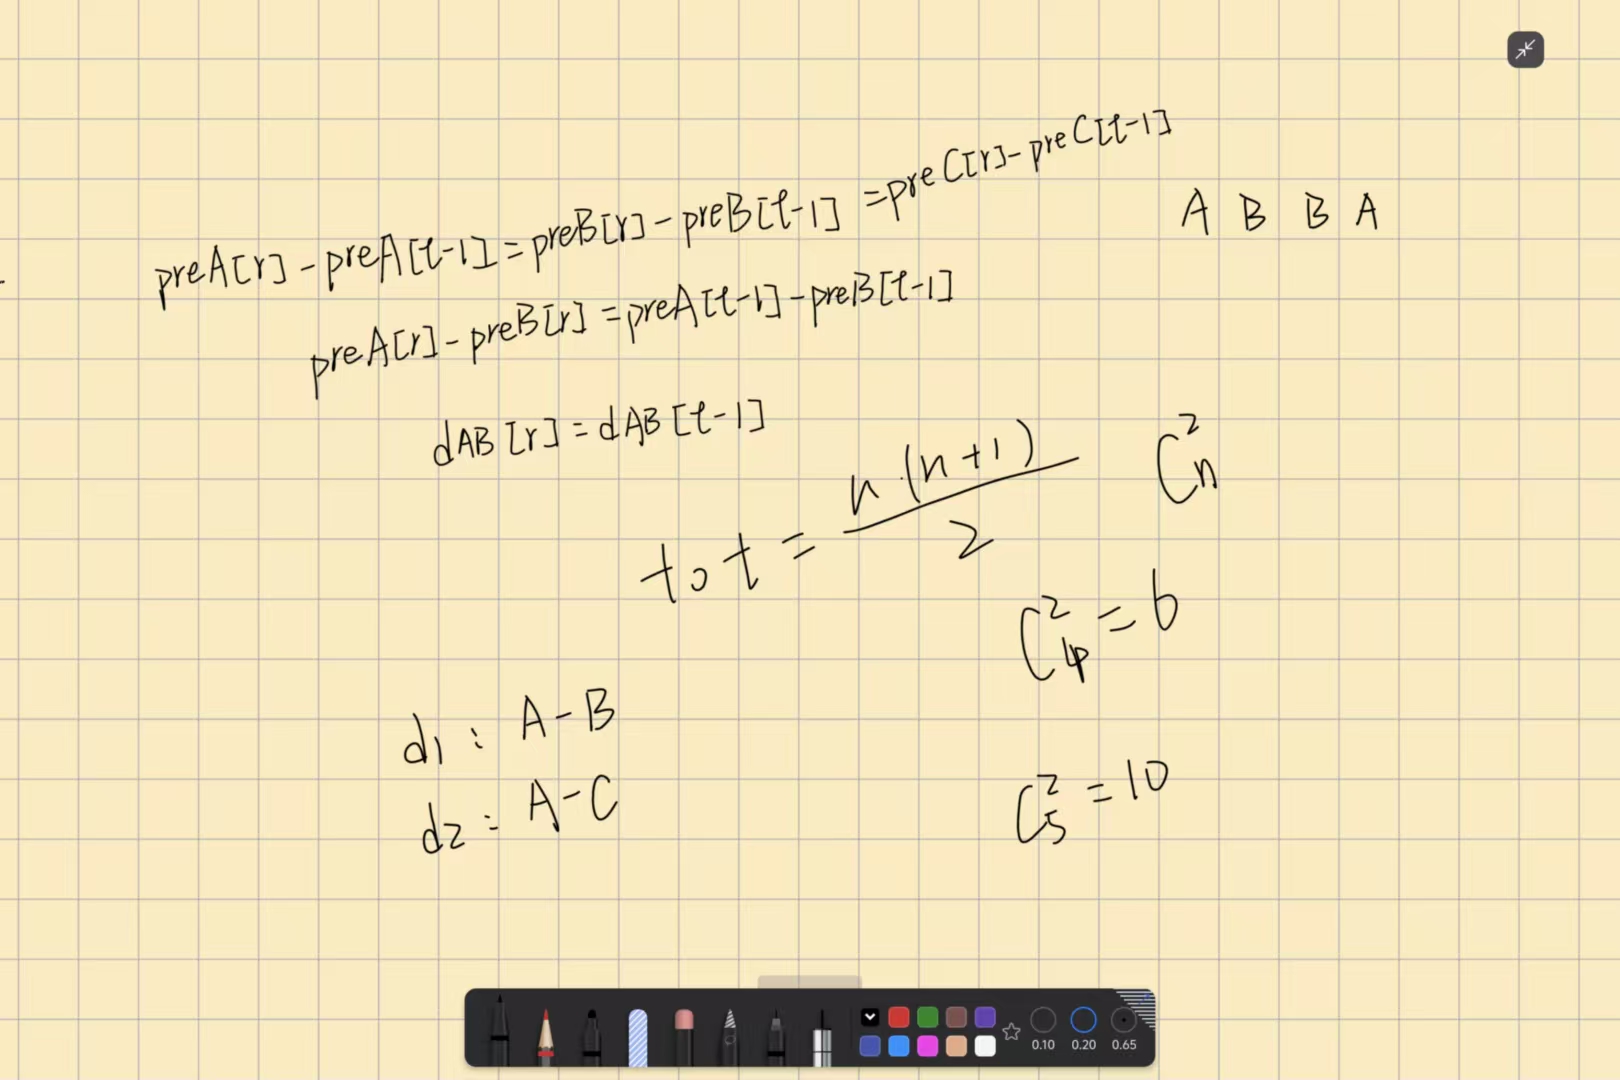 preA[r]-preA[l-1]=preB[r]-preB[l-1]=preC[r]-preC[l-1]
A B B A
preA[r]-preB[r]=preA[l-1]-preB[l-1]
dAB[r]=dAB[l-1]
tot=n(n+1)/2
C_n^2
C_4^2=6
d1: A-B
d2: A-C
C_5^2=10
0.10 0.20 0.65